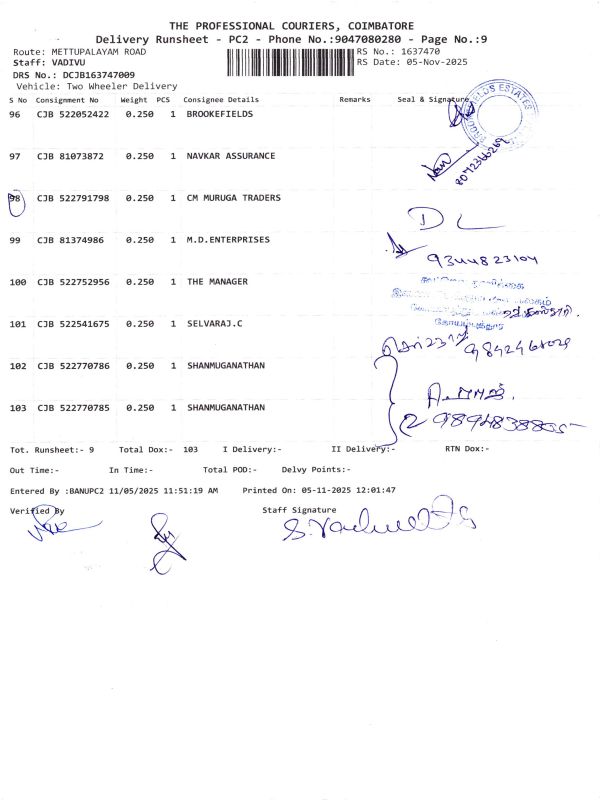 THE PROFESSIONAL COURIERS, COIMBATORE
Delivery Runsheet - PC2 - Phone No.:9047080280 - Page No.:9
Route: METTUPALAYAM ROAD RS No.: 1637470
Staff: VADIVU RS Date: 05-Nov-2025
DRS No.: DCJB163747009
Vehicle: Two Wheeler Delivery
S No Consignment No Weight PCS Consignee Details Remarks Seal & Signature
96 CJB 522052422 0.250 1 BROOKEFIELDS
97 CJB 81073872 0.250 1 NAVKAR ASSURANCE
8072366269
98 CJB 522791798 0.250 1 CM MURUGA TRADERS
D L
99 CJB 81374986 0.250 1 M.D.ENTERPRISES
9344823104
100 CJB 522752956 0.250 1 THE MANAGER
101 CJB 522541675 0.250 1 SELVARAJ.C
102 CJB 522770786 0.250 1 SHANMUGANATHAN
103 CJB 522770785 0.250 1 SHANMUGANATHAN
Tot. Runsheet:- 9 Total Dox:- 103 I Delivery:- II Delivery:- RTN Dox:-
Out Time:- In Time:- Total POD:- Delvy Points:-
Entered By :BANUPC2 11/05/2025 11:51:19 AM Printed On: 05-11-2025 12:01:47
Verified By Staff Signature